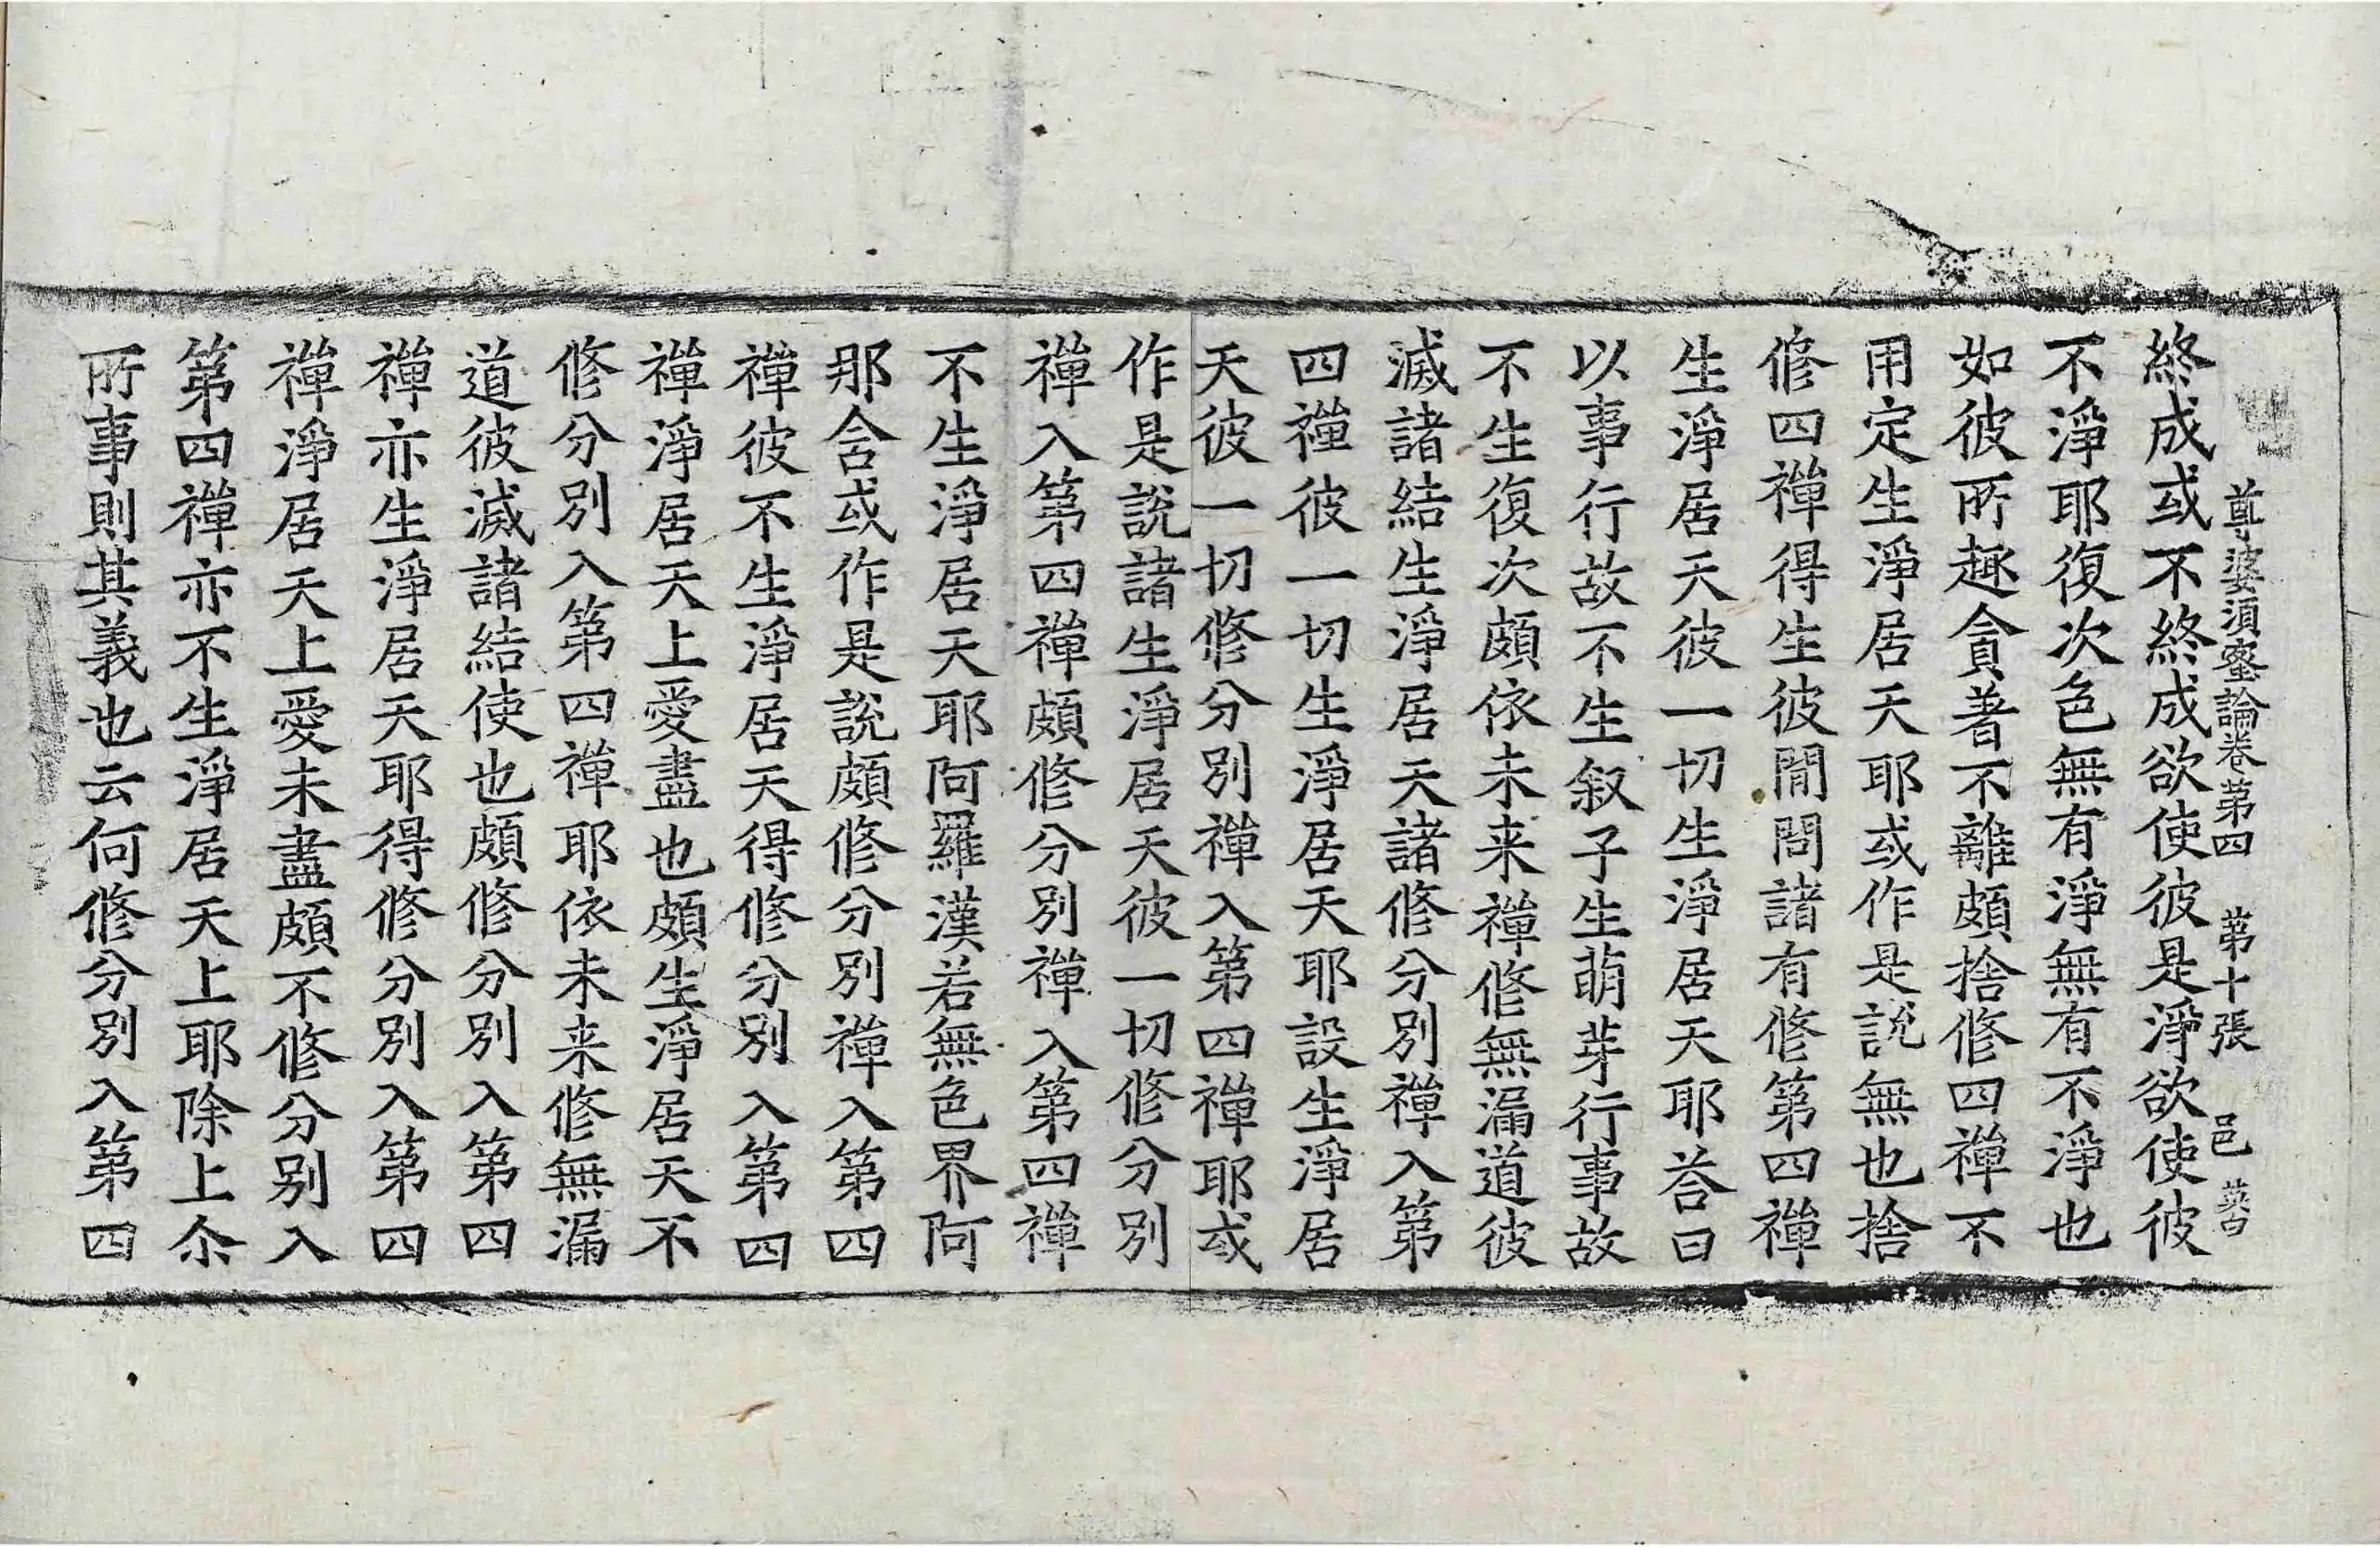 尊婆須蜜論卷第四　第十張　邑
終成或不終成欲使彼是淨欲使彼
不淨耶復次色無有淨無有不淨也
如彼所趣貪著不離頗捨修四禪不
用定生淨居天耶或作是說無也捨
修四禪得生彼閒問諸有修第四禪
生淨居天彼一切生淨居天耶荅曰
以事行故不生叙子生萌芽行事故
不生復次頗依未来禪修無漏道彼
滅諸結生淨居天諸修分別禪入第
四禪彼一切生淨居天耶設生淨居
天彼一切修分別禪入第四禪耶或
作是說諸生淨居天彼一切修分別
禪入第四禪頗修分別禪入第四禪
不生淨居天耶阿羅漢若無色界阿
那含或作是說頗修分別禪入第四
禪彼不生淨居天得修分別入第四
禪淨居天上愛盡也頗生淨居天不
修分別入第四禪耶依未来修無漏
道彼滅諸結使也頗修分別入第四
禪亦生淨居天耶得修分別入第四
禪淨居天上愛未盡頗不修分別入
第四禪亦不生淨居天上耶除上尒
所事則其義也云何修分別入第四